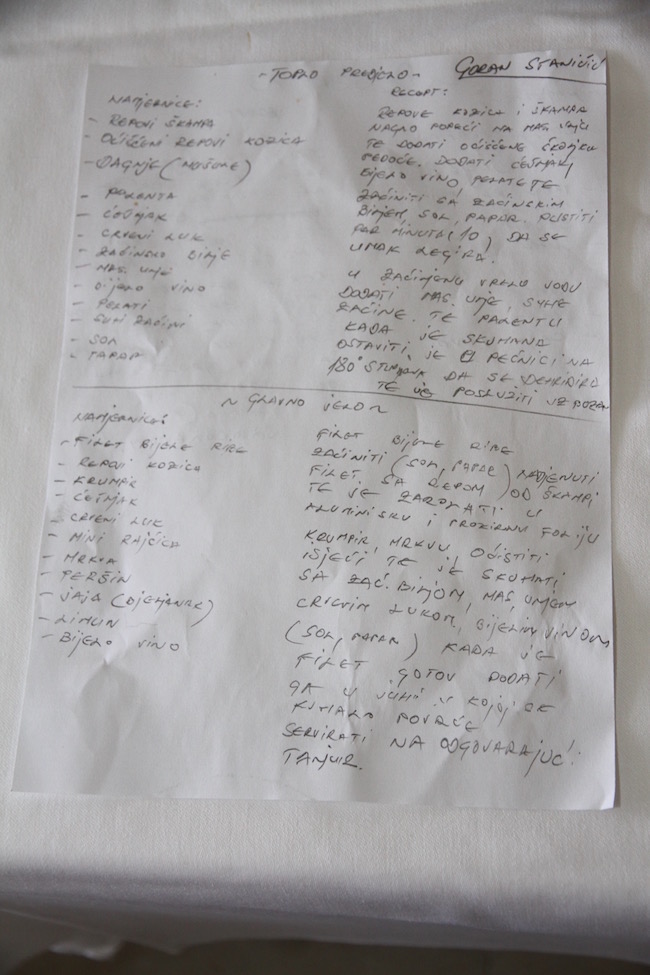 - TOPLO PREDJELO -
GORAN STANIČIĆ
NAMJERNICE:
- REPOVI ŠKAMPA
- OČIŠČENI REPOVI KOZICA
- DAGNJE (MUŠULE)
- PALENTA
- ČEŠNJAK
- CRVENI LUK
- ZAČINSKO BILJE
- MAS. ULJE
- BIJELO VINO
- PELATI
- SUHI ZAČINI
- SOL
- PAPAR
RECEPT:
REPOVE KOZICA I ŠKAMPA
NAGLO POPEĆI NA MAS. ULJU
TE DODATI OČIŠČENE ŠKOLJKE
PEDOČE, DODATI ČEŠNJAK,
BIJELO VINO, PELATE TE
ZAČINITI SA ZAČINSKIM
BILJEM, SOL, PAPAR. PUSTITI
PAR MINUTA (10) DA SE
UMAK LEGIRA.
U ZAČINJENU VRELU VODU
DODATI MAS. ULJE, SUHE
ZAČINE, TE PALENTU
KADA JE SKUHANA
OSTAVITI JE U PEĆNICI NA
180° DA SE DEHIDRIRA
TE JE POSLUŽITI UZ
~ GLAVNO JELO ~
NAMJERNICE:
- FILET BIJELE RIBE
- REPOVI KOZICA
- KRUMPIR
- ČEŠNJAK
- CRVENI LUK
- MINI RAJČICA
- MRKVA
- PERŠIN
- JAJA (BJELANJAK)
- LIMUN
- BIJELO VINO
FILET BIJELE RIBE
ZAČINITI (SOL, PAPAR) NADJENUTI
FILET SA REPOM OD ŠKAMPI
TE JE ZAROLATI U
ALUMINISKU I PROZIRNU FOLIJU
KRUMPIR, MRKVU, OČISTITI
ISJEĆI TE JE SKUHATI
SA ZAČ. BILJOM, MAS, ULJEM
CRVENIM LUKOM, BIJELIM VINOM
(SOL, PAPAR) KADA JE
FILET GOTOV DODATI
GA U JUHU U KOJOJ SE
KUHALO POVRĆE
SERVIRATI NA ODGOVARAJUĆI
TANJUR.